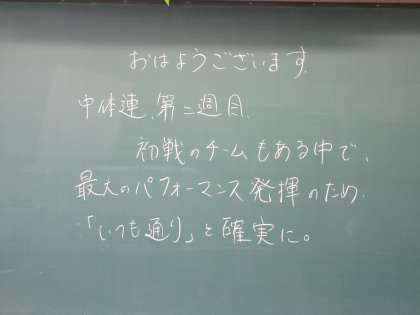 おはようございます。
中体連、第二週目、
初戦のチームもある中で、
最大のパフォーマンス発揮のため、
「いつも通り」と確実に。